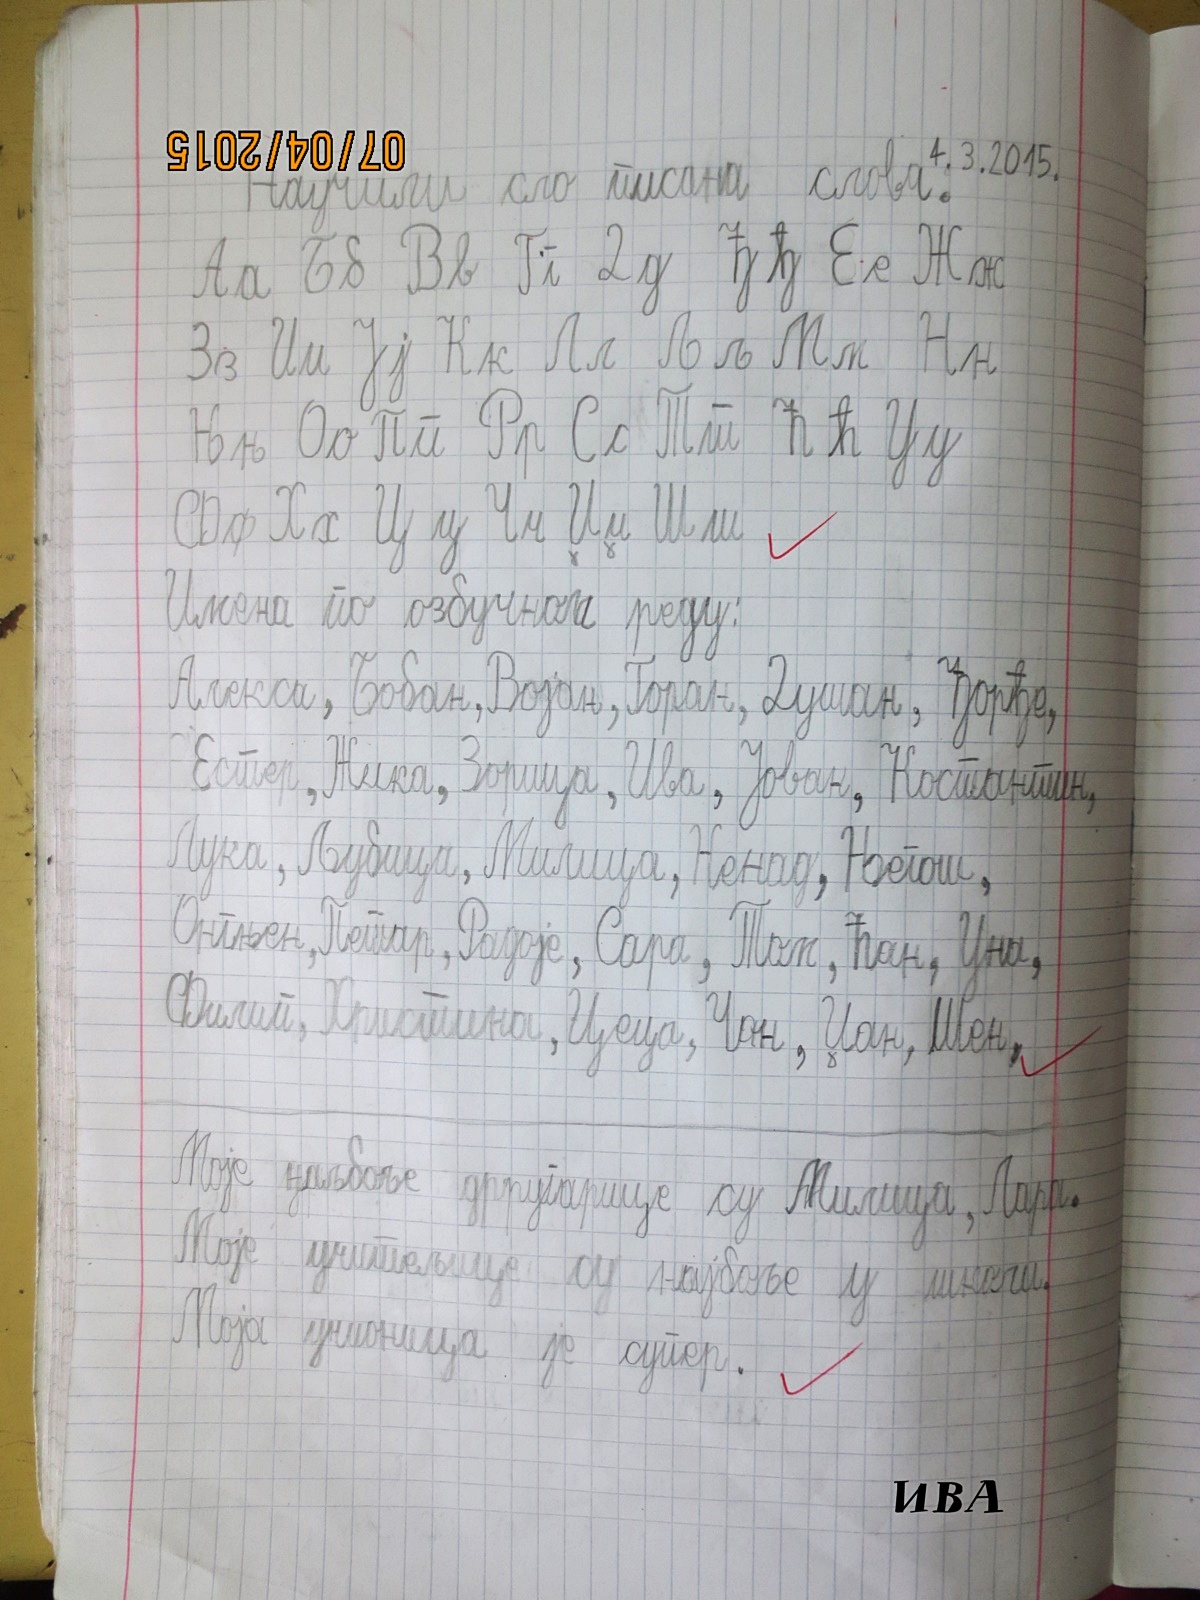 07/04/2015
4.3.2015.
Научили смо писана слова:
Аа Бб Вв Гг Дд Ђђ Ее Жж
Зз Ии Јј Кк Лл Љљ Мм Нн
Њњ Оо Пп Рр Сс Тт Ћћ Уу
Фф Хх Цц Чч Џџ Шш
Имена по азбучном реду:
Алекса, Бобан, Војан, Горан, Душан, Ђорђе,
Естер, Жика, Зорица, Ива, Јован, Костантин,
Лука, Љубица, Милица, Ненад, Његош,
Огњен, Петар, Радоје, Сара, Том, Ћан, Уна,
Филип, Христина, Цеца, Чан, Џан, Шен,
Моје најбоље другарице су Милица, Лара.
Моје учитељице су најбоље у
Моја учионица је супер.
ИВА